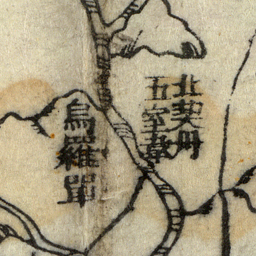 北契丹
五室韋
烏羅單